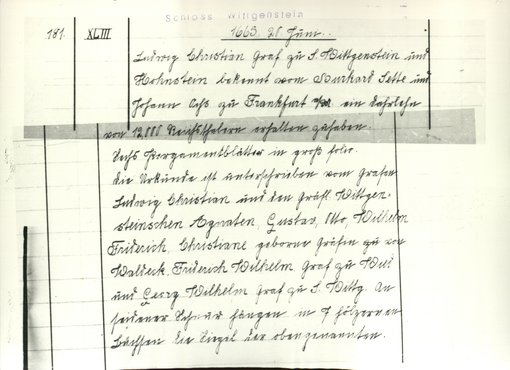 Schloss Wittgenstein
181. XLIII 1663. 21 Juni.
Ludwig Christian Graf zu S. Wittgenstein und
Hohnstein bekennt vom Burkart Sette und
Johann Ochs zu Frankfurt ein Darlehn
von 12,000 Reichsthalern erhalten zuhaben.
Sechs Pergamentblätter in groß folio.
Die Urkunde ist unterschrieben vom Grafen
Ludwig Christian und den Gräfl. Wittgen-
steinschen Agnaten, Gustav, Otto, Wilhelm
Friderich, Christiane geborne Gräfin zu von
Waldeck. Friderich Wilhelm Graf zu Wied
und Georg Wilhelm Graf zu S. Wittg. An
seidener Schnur hängen in 7 hölzernen
Büchsen die Siegel der obengenannten.